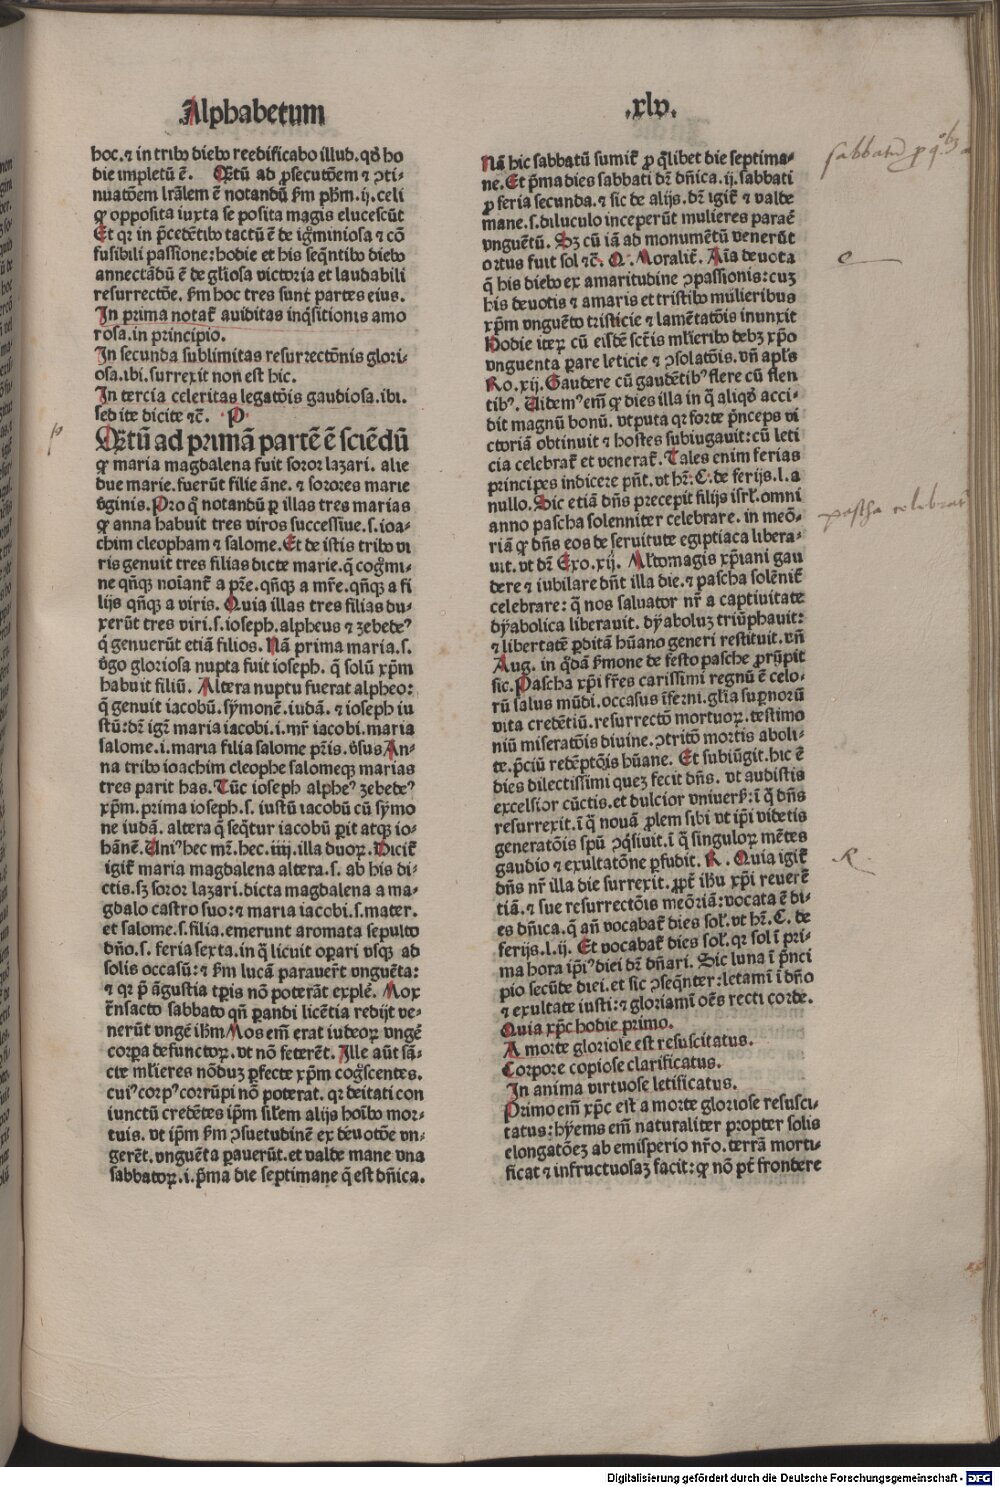 Alphabetum
.xlv.
hoc. ⁊ in tribꝰ diebꝰ reedificabo illud. qđ ho
die impletũ ẽ. Q̃tũ ad ꝓsecutõem ⁊ ꝯti-
nuatõem lrãlem ẽ notandũ ẜm pħm .ij. celi
ꝙ opposita iuxta se posita magis elucescũt
Et qꝛ in p̃cedẽtibꝰ tactũ ẽ de ig̃miniosa ⁊ cõ
fusibili passione: hodie et his seq̃ntibꝰ diebꝰ
annectãdũ ẽ de gl̃iosa victoria et laudabili
resurrectõe. ẜm hoc tres sunt partes eius.
In prima notaꝉ auiditas inq̃sitionis amo
rosa. in principio.
In secunda sublimitas resurrectõnis glori-
osa. ibi. surrexit non est hic.
In tercia celeritas legatõis gaudiosa. ibi.
sed ite dicite ⁊c̃. P
Q̃tũ ad primã partẽ ẽ sciẽdũ
ꝙ maria magdalena fuit soror lazari. alie
due marie. fuerũt filie ãne. ⁊ sorores marie
ṽginis. Pro q̃ notandũ ꝑ illas tres marias
ꝙ anna habuit tres viros successiue. s. ioa-
chim cleopham ⁊ salome. Et de istis tribꝰ vi
ris genuit tres filias dicte marie. q̃ cog̃mi-
ne qñqꝫ noĩantꝉ a p̃re. qñqꝫ a mr̃e. qñqꝫ a fi
lijs qñqꝫ a viris. Quia illas tres filias du-
xerũt tres viri. s. ioseph. alpheus ⁊ zebedeꝰ
q̃ genuerũt etiã filios. Nã prima maria. s.
ṽgo gloriosa nupta fuit ioseph. q̃ solũ xp̃m
habuit filiũ. Altera nuptu fuerat alpheo:
q̃ genuit iacobũ. sÿmonẽ. iudã. ⁊ ioseph iu
stũ: dr̃ igr̃ maria iacobi. i. mr̃ iacobi. maria
salome. i. maria filia salome pr̃is. ṽsus An-
na tribꝰ ioachim cleophe salomeqꝫ marias
tres parit has. Tũc ioseph alpheꝰ zebedeꝰ
xp̃m. prima ioseph. s. iustũ iacobũ cũ sÿmo
ne iudã. altera q̃ seq̃tur iacobũ ꝑit atqꝫ io-
hãnẽ. Vniꝰ hec mr̃. hec. iiij. illa duoꝝ. Diciꝉ
igiꝉ maria magdalena altera. s. ab his di-
ctis. sꝫ soror lazari. dicta magdalena a ma-
gdalo castro suo: ⁊ maria iacobi. s. mater.
et salome. s. filia. emerunt aromata sepulto
dño. s. feria sexta. in q̃ licuit oꝑari vsqꝫ ad
solis occasũ: ⁊ ẜm lucã parauer̃t vnguẽta:
⁊ qꝛ p̃ ãgustia tꝑis nõ poterãt explẽ. Mox
t̃nsacto sabbato qñ ꝑandi licẽtia redijt ve-
nerũt vngẽ iħm Mos em̃ erat iudeoꝝ vngẽ
corꝑa defunctoꝝ. vt nõ feterẽt. Ille aũt sã-
cte ml̃ieres nõduꝫ ꝑfecte xp̃m cog̃scentes.
cuiꝰ corpꝰ corrũpi nõ poterat. qꝛ deitati con
iunctũ credẽtes ip̃m sil̃em alijs hoĩbꝰ mor-
tuis. vt ip̃m ẜm ꝯsuetudinẽ ex deuotõe vn-
gerẽt. vnguẽta ꝑauerũt. et valde mane vna
sabbatoꝝ. i. p̃ma die septimane q̃ est dñica.
Nã hic sabbatũ sumiꝉ ꝓ q̃libet die septima-
ne. Et p̃ma dies sabbati dr̃ dñica. ij. sabbati
ꝓ feria secunda. ⁊ sic de alijs. dr̃ igiꝉ ⁊ valde
mane. s. diluculo inceperũt mulieres paraẽ
vnguẽtũ. Sꝫ cũ iã ad monumẽtũ venerũt
ortus fuit sol ⁊c̃. Q. Moraliꝉ. Aĩa deuota
q̃ his diebꝰ ex amaritudine ꝯpassionis: cuꝫ
his deuotis ⁊ amaris et tristibꝰ mulieribus
xp̃m vnguẽto tristicie ⁊ lamẽtatõis inunxit
Hodie iteꝝ cũ eisdẽ sct̃is ml̃ieribꝰ debꝫ xp̃o
vnguenta ꝑare leticie ⁊ ꝯsolatõis. vñ apl̃s
Ro. xij. Gaudere cũ gaudẽtibꝰ flere cũ flen
tibꝰ. Videmꝰ em̃ ꝙ dies illa in q̃ aliqđ acci-
dit magnũ bonũ. vtputa qꝛ forte p̃nceps vi
ctoriã obtinuit ⁊ hostes subiugauit: cũ leti
cia celebraꝉ et veneraꝉ. Tales enim ferias
principes indicere pñt. vt hr̃. C. de ferijs. l. a
nullo. Sic etiã dñs precepit filijs isrl̃. omni
anno pascha solenniter celebrare. in meõ-
riã ꝙ dñs eos de seruitute egiptiaca libera-
uit. vt dr̃ Exo. xij. Ml̃tomagis xp̃iani gau
dere ⁊ iubilare dñt illa die. ⁊ pascha solẽniꝉ
celebrare: q̃ nos saluator nr̃ a captiuitate
dÿabolica liberauit. dÿaboluꝫ triũphauit:
⁊ libertatẽ ꝑditã hũano generi restituit. vñ
Aug. in q̃dã ẜmone de festo pasche ꝓrũpit
sic. Pascha xp̃i fr̃es carissimi regnũ ẽ celo-
rũ salus mũdi. occasus ĩferni. gl̃ia suꝑnorũ
vita credẽtiũ. resurrectõ mortuoꝝ. testimo
niũ miseratõis diuine. ꝯtritõ mortis aboli-
te. p̃ciũ redẽptõis hũane. Et subiũgit. hic ẽ
dies dilectissimi quez fecit dñs. vt audistis
excelsior cũctis. et dulcior vniuerẜ: ĩ q̃ dñs
resurrexit. ĩ q̃ nouã ꝓlem sibi vt ip̃i videtis
generatõis spũ ꝯq̃siuit. ĩ q̃ singuloꝝ mẽtes
gaudio ⁊ exultatõne ꝑfudit. R. Quia igiꝉ
dñs nr̃ illa die surrexit. ꝓpꝉ iħu xp̃i reuerẽ
tiã. ⁊ sue resurrectõis meõriã: vocata ẽ di-
es dñica. q̃ añ vocabaꝉ dies sol̃. vt hr̃. C. de
ferijs. l. ij. Et vocabaꝉ dies sol̃. qꝛ sol ĩ pri-
ma hora ip̃iꝰ diei dr̃ dñari. Sic luna ĩ p̃nci
pio secũde diei. et sic ꝯseq̃nter: letamĩ ĩ dño
⁊ exultate iusti: ⁊ gloriamĩ oẽs recti corde.
Quia xp̃c hodie primo.
A morte gloriose est resuscitatus.
Corpore copiose clarificatus.
In anima virtuose letificatus.
Primo em̃ xp̃c est a morte gloriose resusci-
tatus: hÿems em̃ naturaliter propter solis
elongatõeꝫ ab emisperio nr̃o. terrã morti-
ficat ⁊ infructuosaꝫ facit: ꝙ nõ pt̃ frondere
p
c
R
Digitalisierung gefördert durch die Deutsche Forschungsgemeinschaft - DFG